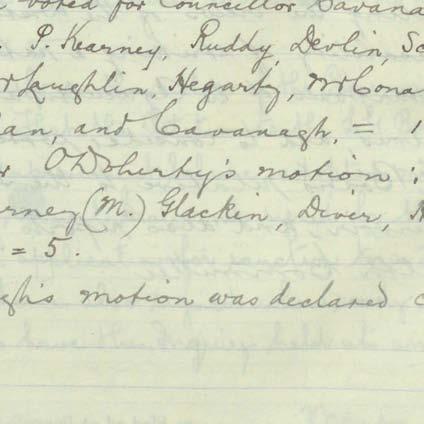 voted for Councillor Cavana
P. Kearney, Ruddy, Devlin, Sc
McLaughlin, Hegarty, McCona
an, and Cavanagh. = 1
O'Doherty's motion :
rney (M.) Glackin, Diver, H
= 5.
gh's motion was declared c